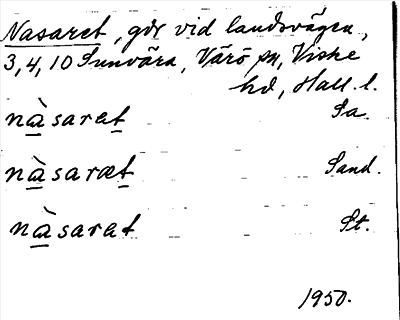 Nasaret, gdr vid landsvägen,
3,4,10 Sunvära, Värö sn, Viske
hd, Hall. l.
nàsarat Sa.
nàsaræt Sand.
nàsarat St.
1950.